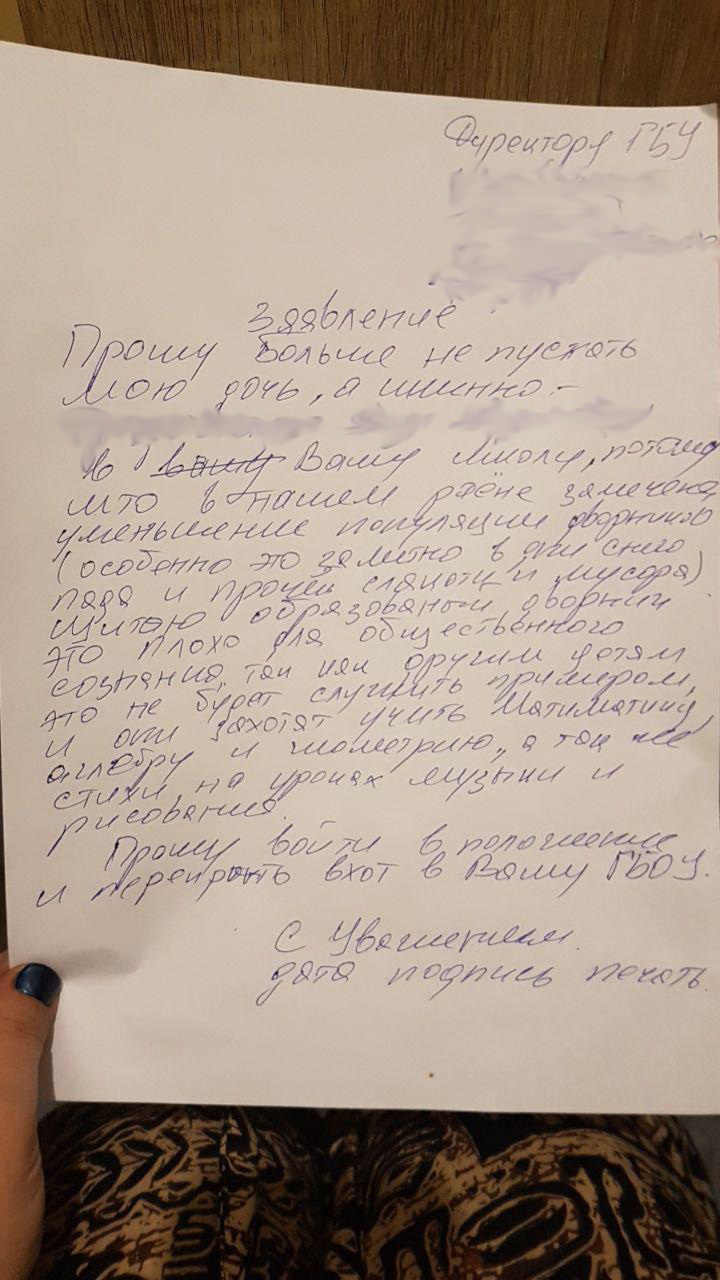 Директору ГБУ
Зяявление
Прошу больше не пускать
мою дочь, а именно -
в вашу Вашу школу, потому
што в нашем раёне замечена
уменьшение популяции дворников
(особенно это заметно в дни снего
пада и прочей слякоти и мусора)
Щитаю образованый дворник
это плохо для общественного
сознания, так как другим детям
это не будет служить примером,
и они захотят учить Матиматику,
аглебру и гиометрию, а так же
стихи на уроках музыки и
рисования.
Прошу войти в положение
и перекрыть вхот в Вашу ГБОУ.
С Уважением.
дата подпись печать.